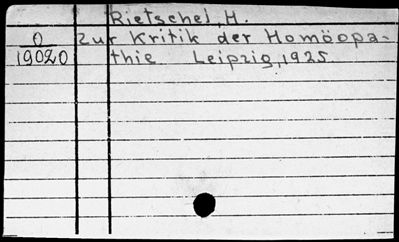 Rietschel, H.
O Zur Kritik der Homöopa-
19020 thie Leipzig, 1925